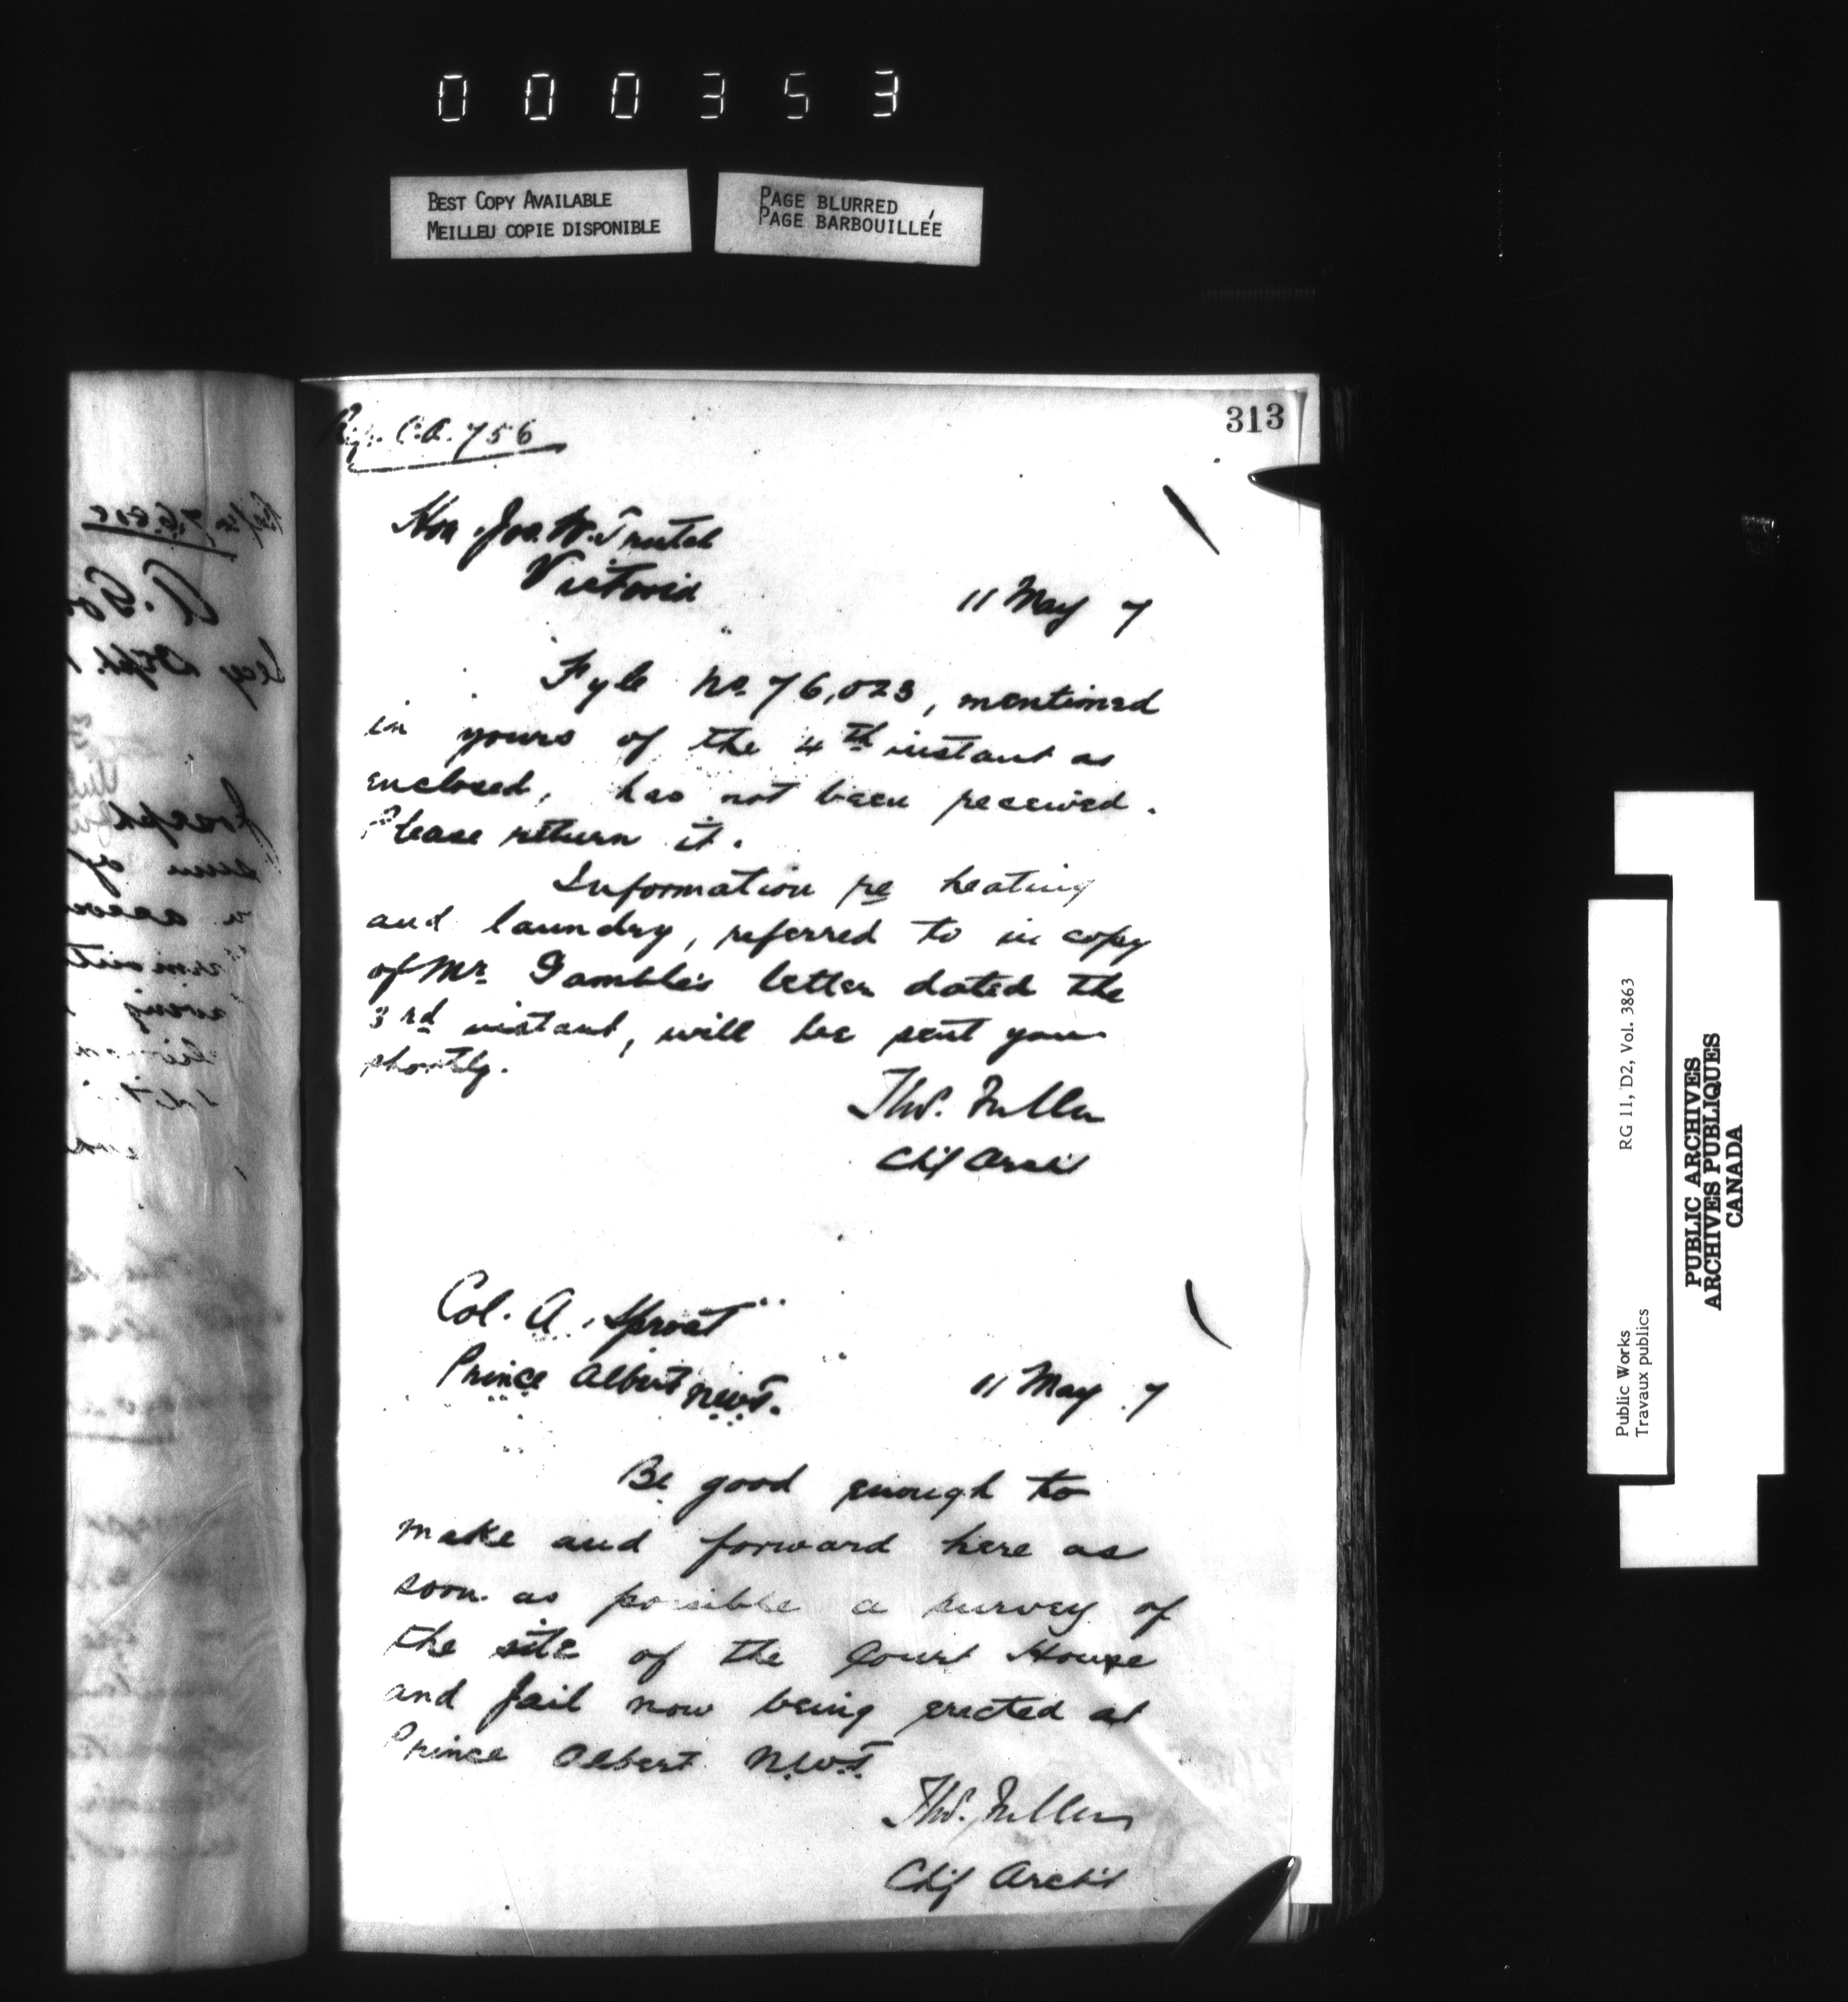 000353
BEST COPY AVAILABLE
MEILLEU COPIE DISPONIBLE
PAGE BLURRED
PAGE BARBOUILLÉE
313
C.A. 756
Hon Jos. W. Trutch
Victoria
11 May 7
Fyle No. 76,023, mentioned
in yours of the 4th instant as
enclosed, has not been received.
Please return it.
Information re heating
and laundry, referred to in copy
of Mr. Gamble's letter dated the
3rd instant, will be sent you
shortly.
Thos. Fuller
Chf Archt
Col. A. Sproat
Prince Albert NWT.
11 May 7
Be good enough to
make and forward here as
soon as possible a survey of
the site of the Court House
and Jail now being erected at
Prince Albert N.W.T.
Thos. Fuller
Chf Archt
Public Works
Travaux publics
RG 11, D2, Vol. 3863
PUBLIC ARCHIVES
ARCHIVES PUBLIQUES
CANADA